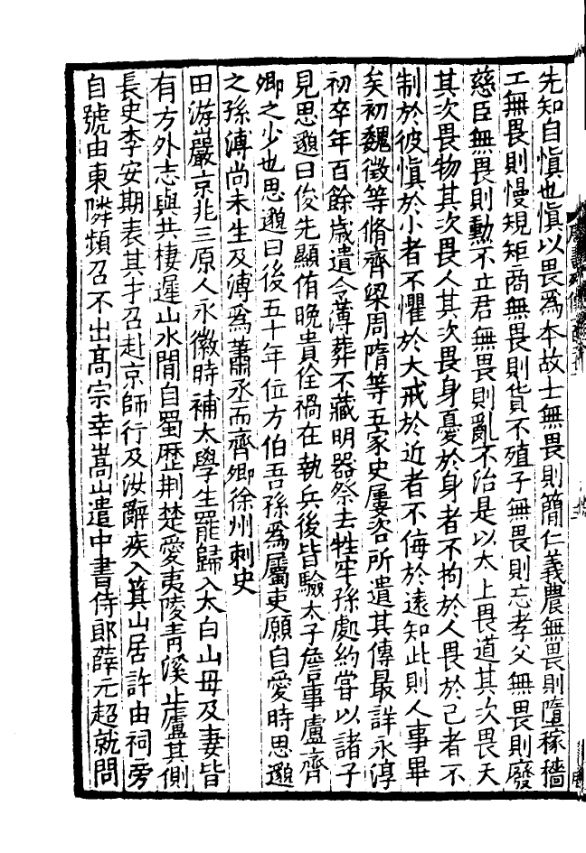 先知自慎也慎以畏爲本故士無畏則簡仁義農無畏則墮稼穡
工無畏則慢規矩商無畏則貨不殖子無畏則忘孝父無畏則廢
慈臣無畏則勳不立君無畏則亂不治是以太上畏道其次畏天
其次畏物其次畏人其次畏身憂於身者不拘於人畏於己者不
制於彼慎於小者不懼於大戒於近者不侮於遠知此則人事畢
矣初魏徵等脩齊梁周隋等五家史屢咨所遺其傳最詳永淳
初卒年百餘歲遺令薄葬不藏明器祭去牲牢孫處約嘗以諸子
見思邈曰俊先顯侑晚貴佺禍在執兵後皆驗太子詹事盧齊
卿之少也思邈曰後五十年位方伯吾孫爲屬吏願自愛時思邈
之孫溥尚未生及溥爲蕭丞而齊卿徐州刺史
田游巖京兆三原人永徽時補太學生罷歸入太白山母及妻皆
有方外志與共棲遲山水間自蜀歷荆楚愛夷陵青溪止廬其側
長史李安期表其才召赴京師行及汝辭疾入箕山居許由祠旁
自號由東隣頻召不出高宗幸嵩山遣中書侍郎薛元超就問